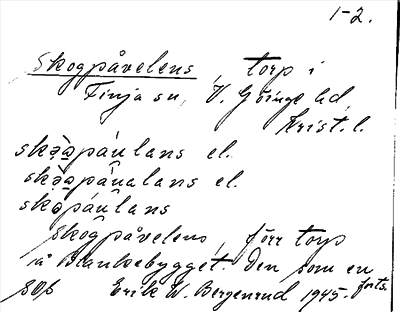 1-2.
Skogpåvelens, torp i
Finja sn, V. Göinge hd,
Krist. l.
skə̀ə̯páu̯lans el.
skə̀ə̯páu̯alans el.
skəpáu̯lans
Skogpåvelens, förr torp
på Blankebygget. Den som en
forts.
Erik W. Bergenrud 1945.